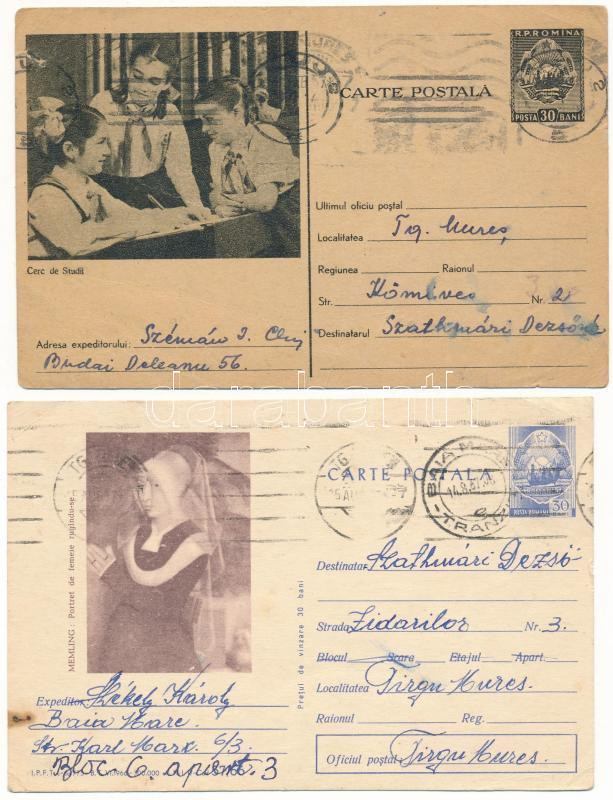 R.P.ROMINA
CARTE POSTALĂ
POSTA 30 BANI
Ultimul oficiu poștal
Localitatea Tg. Mureș
Regiunea Raionul
Str. Kőmives Nr. 2
Destinatarul Szathmári Dezsőné
Cerc de Studii
Adresa expeditorului: Szémán I. Cluj
Budai Deleanu 56.
darabanth
CARTE POSTALA
BAIA M
TRANZ
POSTA ROMINA 30
MEMLING: Portret de femeie rugîndu-se
Prețul de vînzare 30 bani
Destinatar Szathmári Dezső
Strada Zidarilor Nr. 3.
Blocul Scara Etajul Apart.
Localitatea Tîrgu Mureș.
Raionul Reg.
Oficiul poștal Tîrgu Mureș.
Expeditor Székely Károly
Baia Mare
Str. Karl Marx 6/3.
Bloc. 6. apart. 3